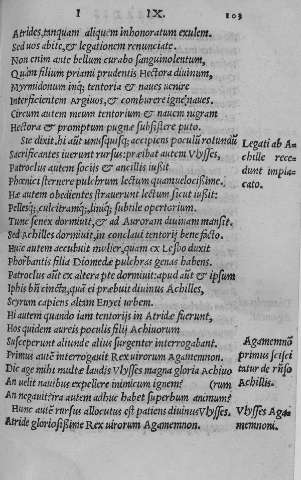 I IX. 103
Atrides, tanquam aliquem inhonoratum exulem.
Sed uos abite, & legationem renunciate.
Non enim ante bellum curabo sanguinolentum,
Quàm filium priami prudentis Hectora diuinum,
Myrmidonum inq; tentoria & naues uenire
Interficientem Argiuos, & comburere igne naues.
Circum autem meum tentorium & nauem nigram
Hectora & promptum pugnæ subsistere puto.
Sic dixit, hi aūt unusquisq; accipiens poculū rotundū
Sacrificantes iuerunt rursus: præibat autem Vlysses,
Patroclus autem sociis & ancillis iussit
Phœnici sternere pulcrum lectum quam uelocissime.
Hæ autem obedientes strauerunt lectum sicut iussit:
Pellesq;, culcitramq;, linīq; subtile opertorium.
Tunc senex dormiuit, & ad Auroram diuinam mansit.
Sed Achilles dormiuit, in conclaui tentorij bene facto.
Huic autem accubuit mulier, quam ex Lesbo duxit
Phorbantis filia Diomedæ pulchras genas habens.
Patroclus aūt ex altera pte dormiuit: apud aūt & ipsum
Iphis bñ cincta, quā ei præbuit diuinus Achilles,
Scyrum capiens altam Enyei urbem.
Hi autem quando iam tentorijs in Atridæ fuerunt,
Hos quidem aureis poculis filij Achiuorum
Susceperunt aliunde alius surgenter interrogabant.
Primus aūt interrogauit Rex uirorum Agamemnon.
Dic age mihi multæ laudis Vlysses magna gloria Achiuo
An uelit nauibus expellere inimicum ignem? (rum
An negauit: ira autem adhuc habet superbum animum?
Hunc aūt rursus allocutus est patiens diuinus Vlysses.
Atride gloriosissime Rex uirorum Agamemnon.
Legati ab A-
chille rece
dunt impla
cato.
Agamemnō
primus scisci
tatur de rũso
Achillis.
Vlysses Aga
memnoni.